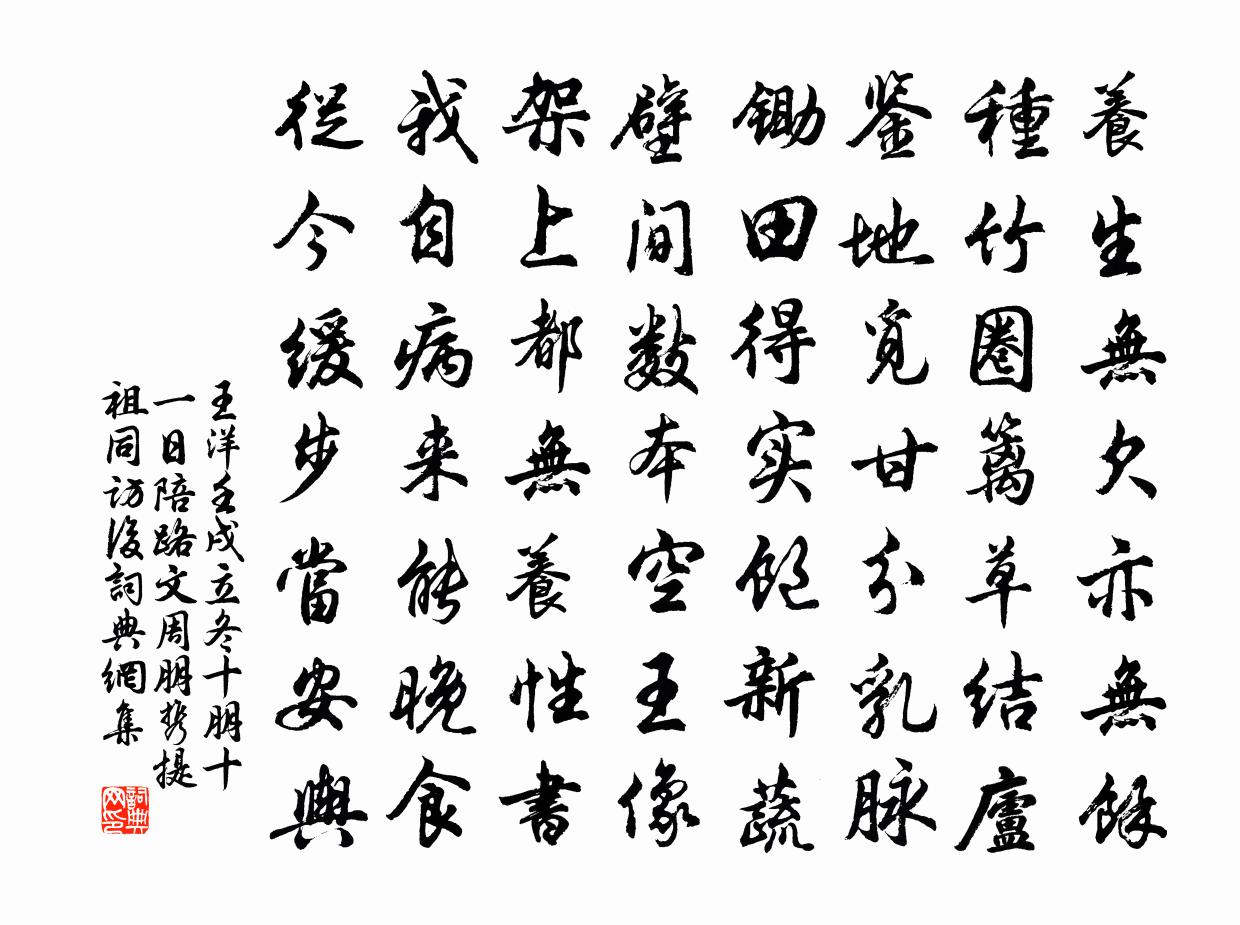 養生無欠亦無餘
種竹圈籬草結廬
鉴地覓甘分乳脉
鋤田得实飽新蔬
壁间数本空王像
架上都無養性書
我自病来能晚食
從今缓步當安輿
王洋壬戌立冬十朋十
一日陪路文周朋携提
祖同访後詞典網集
詞典网印